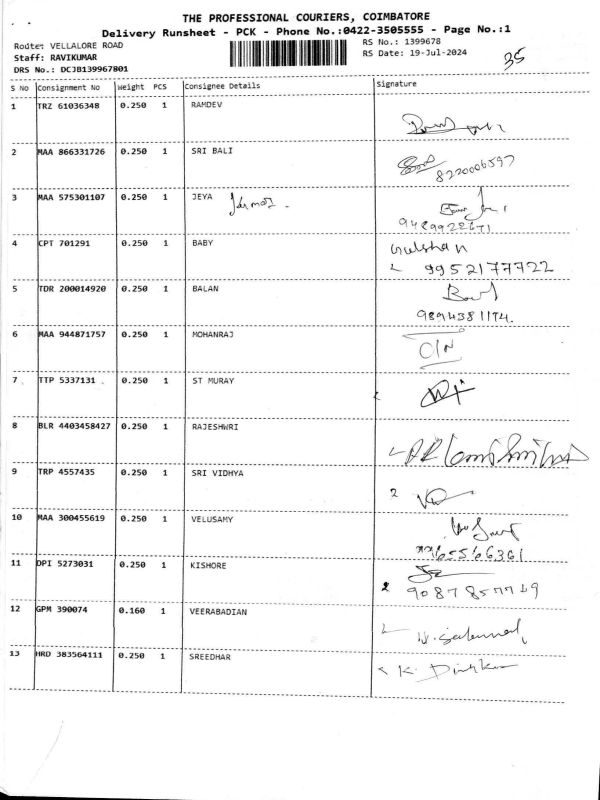 THE PROFESSIONAL COURIERS, COIMBATORE
Delivery Runsheet - PCK - Phone No.:0422-3505555 - Page No.:1
Route: VELLALORE ROAD
RS No.: 1399678
Staff: RAVIKUMAR
RS Date: 19-Jul-2024
35
DRS No.: DCJB139967801
S No Consignment No Weight PCS Consignee Details Signature
1 TRZ 61036348 0.250 1 RAMDEV
2 MAA 866331726 0.250 1 SRI BALI
8220006597
3 MAA 575301107 0.250 1 JEYA
9489922671
4 CPT 701291 0.250 1 BABY Gulshan
9952177722
5 TDR 200014920 0.250 1 BALAN
9894381174.
6 MAA 944871757 0.250 1 MOHANRAJ
7 TTP 5337131 0.250 1 ST MURAY
8 BLR 4403458427 0.250 1 RAJESHWRI
9 TRP 4557435 0.250 1 SRI VIDHYA
10 MAA 300455619 0.250 1 VELUSAMY
11 DPI 5273031 0.250 1 KISHORE
12 GPM 390074 0.160 1 VEERABADIAN
13 HRD 383564111 0.250 1 SREEDHAR